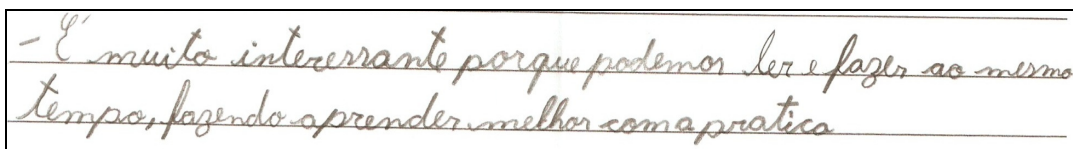 - É muito interessante porque podemos ler e fazer ao mesmo
tempo, fazendo aprender melhor com a pratica